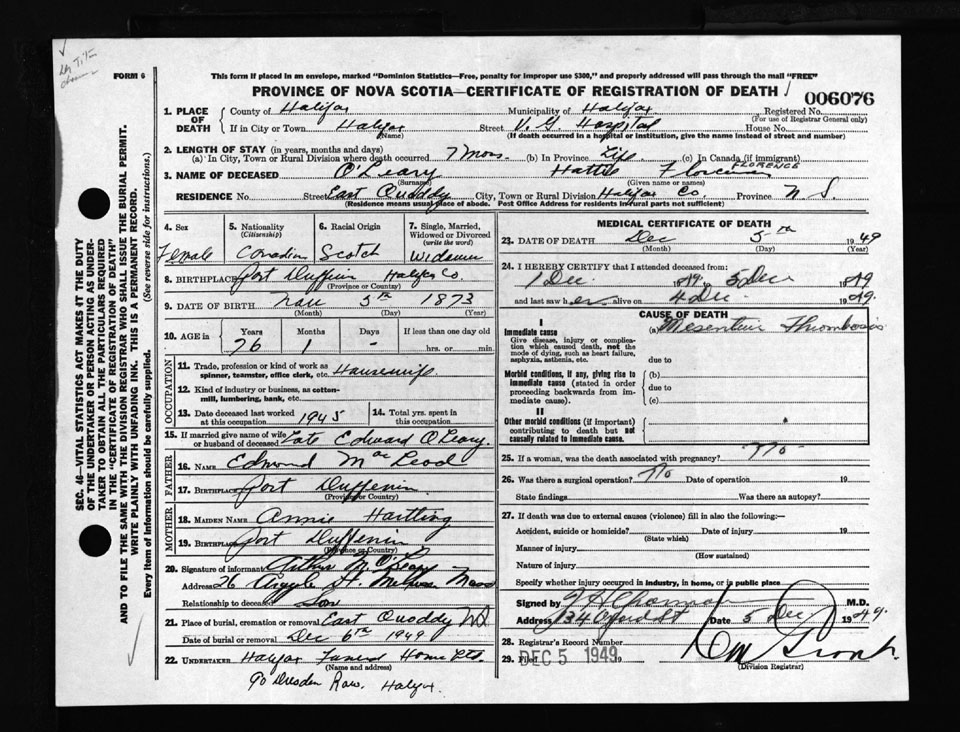 FORM 6
This form if placed in an envelope, marked "Dominion Statistics—Free, penalty for improper use $300," and properly addressed will pass through the mail "FREE"
PROVINCE OF NOVA SCOTIA—CERTIFICATE OF REGISTRATION OF DEATH
006076
1. PLACE OF DEATH
County of Halifax Municipality of Halifax Registered No.
(For use of Registrar General only)
If in City or Town Halifax Street V. G. Hospital House No.
(Name) (If death occurred in a hospital or institution, give the name instead of street and number)
2. LENGTH OF STAY (in years, months and days)
(a) In City, Town or Rural Division where death occurred 7 Mos. (b) In Province Life (c) In Canada (if immigrant)
FLORENCE
3. NAME OF DECEASED O'Leary Hattie
(Surname) (Given name or names)
RESIDENCE No. Street East Quoddy City, Town or Rural Division Halifax Co. Province N S.
(Residence means usual place of abode. Post Office Address for residents in rural parts not sufficient)
4. Sex
Female
5. Nationality
(Citizenship)
Canadian
6. Racial Origin
Scotch
7. Single, Married, Widowed or Divorced
(write the word)
Widow
8. BIRTHPLACE Port Dufferin Halifax Co.
(Province or Country)
9. DATE OF BIRTH Nov 5th 1873
(Month) (Day) (Year)
10. AGE in Years Months Days If less than one day old
76 1 - hrs. or min.
OCCUPATION
11. Trade, profession or kind of work as spinner, teamster, office clerk, etc. Housewife
12. Kind of industry or business, as cotton-mill, lumbering, bank, etc.
13. Date deceased last worked at this occupation 1945
14. Total yrs. spent in this occupation
15. If married give name of wife or husband of deceased Late Edward O'Leary.
FATHER
16. NAME Edmund MacLeod
17. BIRTHPLACE Port Dufferin
(Province or Country)
MOTHER
18. MAIDEN NAME Annie Hartling
19. BIRTHPLACE Port Dufferin
(Province or Country)
20. Signature of informant Arthur M. O'Leary
Address 26 Argyle St. Melrose Mass
Relationship to deceased Son
21. Place of burial, cremation or removal East Quoddy NS
Date of burial or removal Dec 6th 1949
22. UNDERTAKER Halifax Funeral Home Ltd.
(Name and address)
90 Dresden Row. Halifax.
MEDICAL CERTIFICATE OF DEATH
23. DATE OF DEATH Dec 5th 1949
(Month) (Day) (Year)
24. I HEREBY CERTIFY that I attended deceased from:
1 Dec 1949, 5 Dec 1949
and last saw her alive on 4 Dec 1949.
CAUSE OF DEATH
I
Immediate cause (a) Mesenteric Thrombosis
Give disease, injury or complication which caused death, not the mode of dying, such as heart failure, asphyxia, asthenia, etc.
due to
Morbid conditions, if any, giving rise to immediate cause (stated in order proceeding backwards from immediate cause).
(b)
due to
(c)
II
Other morbid conditions (if important) contributing to death but not causally related to immediate cause.
25. If a woman, was the death associated with pregnancy? No
26. Was there a surgical operation? No Date of operation 19
State findings Was there an autopsy?
27. If death was due to external causes (violence) fill in also the following:—
Accident, suicide or homicide? Date of injury 19
(State which)
Manner of injury
(How sustained)
Nature of injury
Specify whether injury occurred in industry, in home, or in public place
Signed by M.D.
Address 134 Oxford St Date 5 Dec 1949.
28. Registrar's Record Number
29. Filed DEC 5 1949 19
(Division Registrar)
SEC. 46—VITAL STATISTICS ACT MAKES IT THE DUTY
OF THE UNDERTAKER OR PERSON ACTING AS UNDER-
TAKER TO OBTAIN ALL THE PARTICULARS REQUIRED
IN THE "CERTIFICATE OF REGISTRATION OF DEATH"
AND TO FILE THE SAME WITH THE DIVISION REGISTRAR WHO SHALL ISSUE THE BURIAL PERMIT.
WRITE PLAINLY WITH UNFADING INK. THIS IS A PERMANENT RECORD.
Every item of information should be carefully supplied. (See reverse side for instructions.)